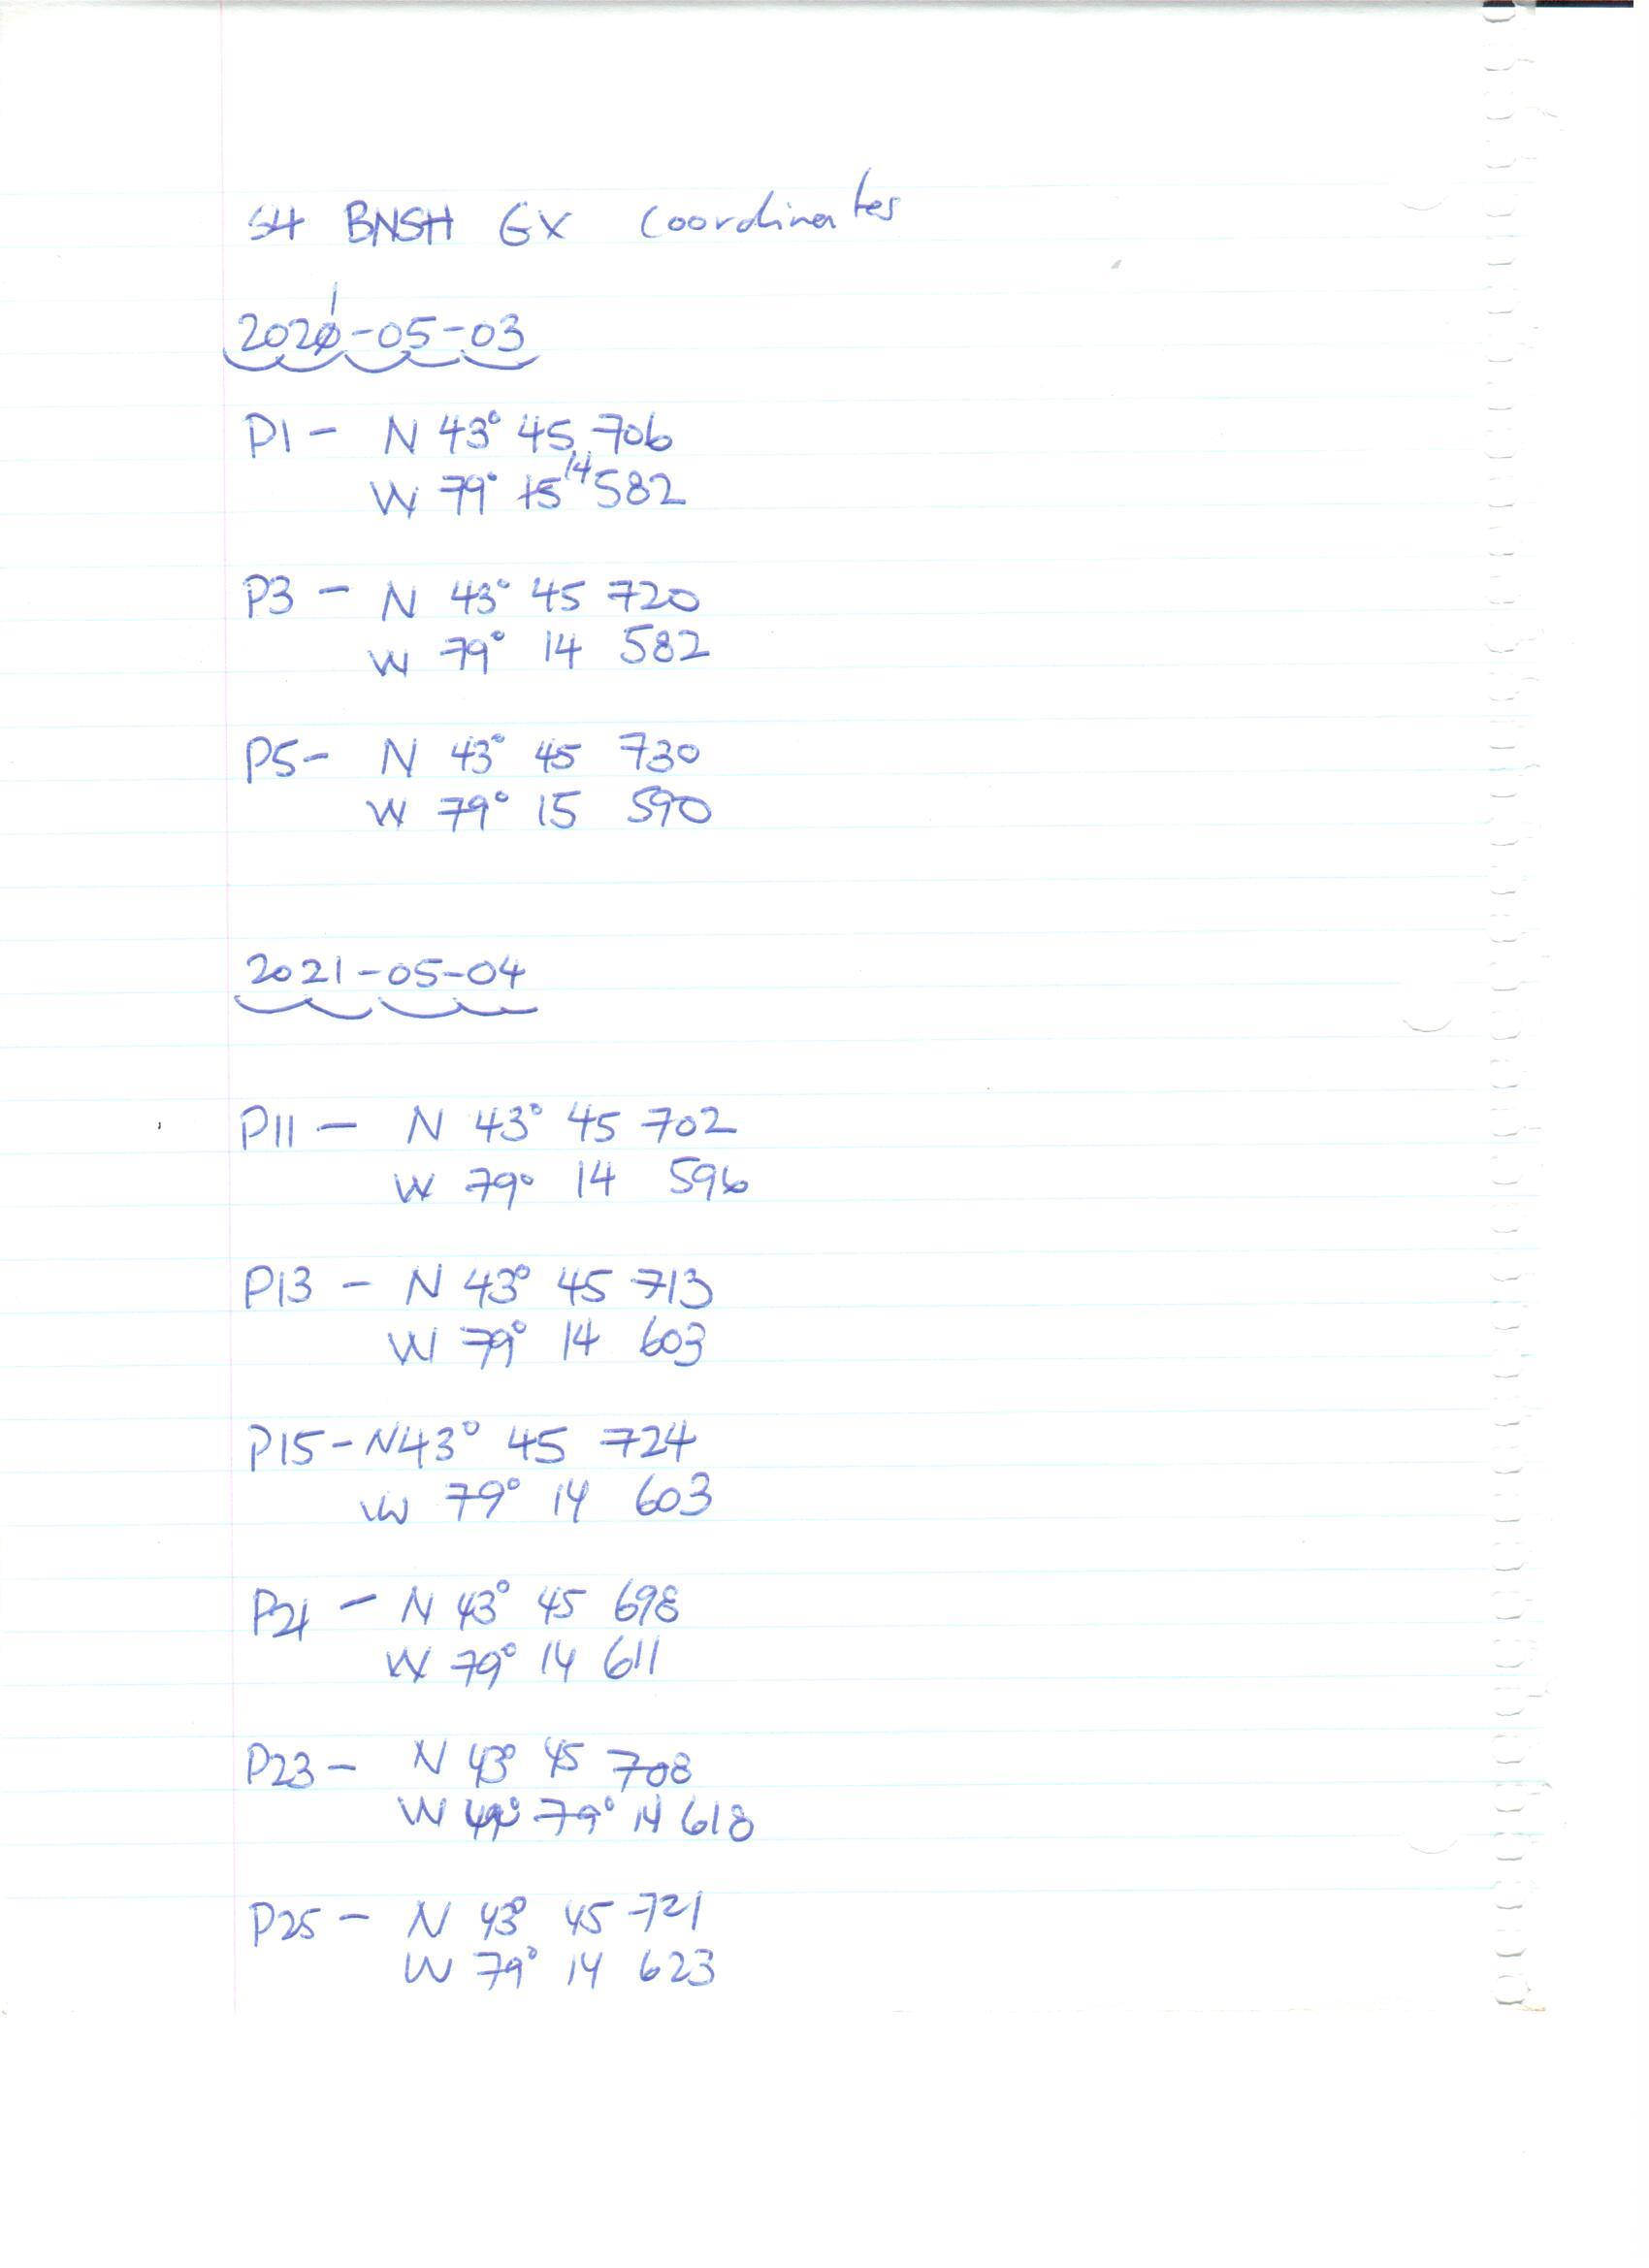 S4 BNSH GX Coordinates
2021-05-03
P1 - N 43° 45 706
W 79° 15 14 582
P3 - N 43° 45 720
W 79° 14 582
P5 - N 43° 45 730
W 79° 15 590
2021-05-04
P11 - N 43° 45 702
W 79° 14 596
P13 - N 43° 45 713
W 79° 14 603
P15 - N 43° 45 724
W 79° 14 603
P21 - N 43° 45 698
W 79° 14 611
P23 - N 43° 45 708
W 79° 14 618
P25 - N 43° 45 721
W 79° 14 623